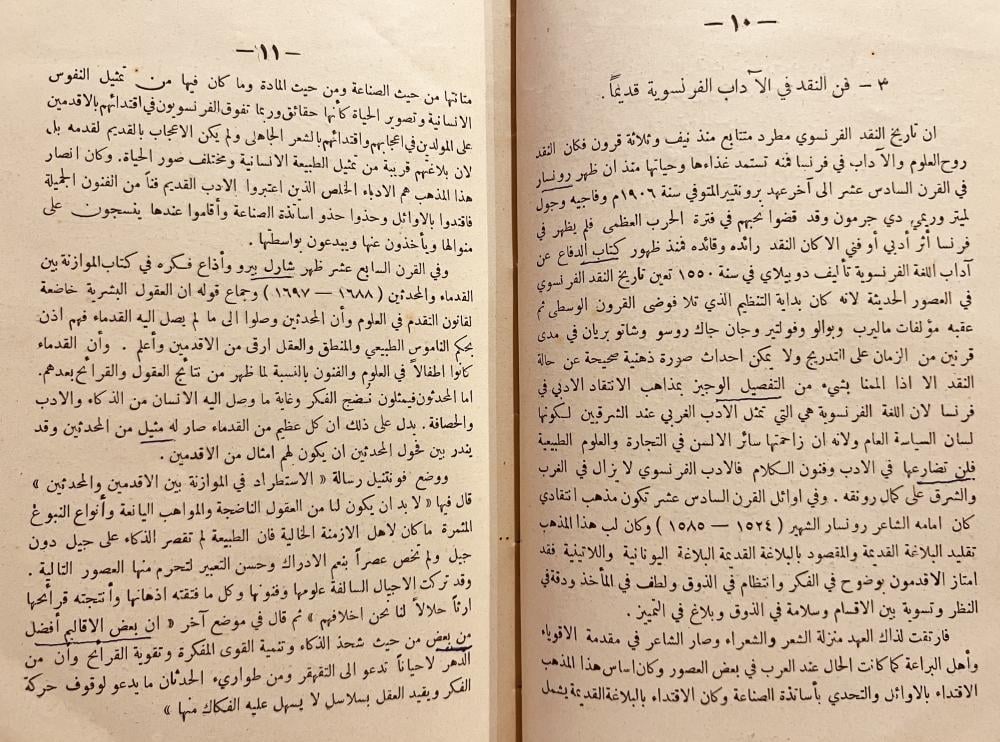 — ١٠ —
٣ — فن النقد في الآداب الفرنسوية قديماً .
ان تاريخ النقد الفرنسوي مطرد متتابع منذ نيف وثلاثة قرون فكان النقد
روح العلوم والآداب في فرنسا فمنه تستمد غذاءها وحياتها منذ ان ظهر رونسار
في القرن السادس عشر الى آخر عهد برونتيير المتوفي سنة ١٩٠٦م وفاجيه وجول
ليمتر وريمي دي جرمون وقد قضوا نحبهم في فترة الحرب العظمى فلم يظهر في
فرنسا أثر أدبي أو فني الا كان النقد رائده وقائده فمنذ ظهور كتاب الدفاع عن
آداب اللغة الفرنسوية تأليف دوبيلاي في سنة ١٥٥٠ تعين تاريخ النقد الفرنسوي
في العصور الحديثة لانه كان بداية التنظيم الذي تلا فوضى القرون الوسطى ثم
عقبه مؤلفات ماليرب وبوالو وفولتير وجان جاك روسو وشاتو بريان في مدى
قرنين من الزمان على التدريج ولا يمكن احداث صورة ذهنية صحيحة عن حالة
النقد الا اذا الممنا بشيء من التفصيل الوجيز بمذاهب الانتقاد الادبي في
فرنسا لان اللغة الفرنسوية هي التي تمثل الادب الغربي عند الشرقيين لكونها
لسان السياسة العام ولانه ان زاحمتها سائر الالسن في التجارة والعلوم الطبيعية
فلن تضارعها في الادب وفنون الكلام فالادب الفرنسوي لا يزال في الغرب
والشرق على كمال رونقه . وفي اوائل القرن السادس عشر تكون مذهب انتقادي
كان امامه الشاعر رونسار الشهير ( ١٥٢٤ — ١٥٨٥ ) وكان لب هذا المذهب
تقليد البلاغة القديمة والمقصود بالبلاغة القديمة البلاغة اليونانية واللاتينية فقد
امتاز الاقدمون بوضوح في الفكر وانتظام في الذوق ولطف في المأخذ ودقة في
النظر وتسوية بين الاقسام وسلامة في الذوق وبلاغ في التمييز .
فارتقت لذاك العهد منزلة الشعر والشعراء وصار الشاعر في مقدمة الاقوياء
وأهل البراعة كما كانت الحال عند العرب في بعض العصور وكان اساس هذا المذهب
الاقتداء بالاوائل والتحدي بأساتذة الصناعة وكان الاقتداء بالبلاغة القديمة يشمل
— ١١ —
متانتها من حيث الصناعة ومن حيث المادة وما كان فيها من تمثيل النفوس
الانسانية وتصوير الحياة كأنها حقائق وربما تفوق الفرنسويون في اقتدائهم بالاقدمين
على المولدين في اعجابهم واقتدائهم بالشعر الجاهلي ولم يكن الاعجاب بالقديم لقدمه بل
لان بلاغتهم قريبة من تمثيل الطبيعة الانسانية ومختلف صور الحياة . وكان انصار
هذا المذهب هم الادباء الخلص الذين اعتبروا الادب القديم فناً من الفنون الجميلة
فاقتدوا بالاوائل وحذوا حذو اساتذة الصناعة وأقاموا عندها ينسجون على
منوالها ويأخذون عنها ويبدعون بواسطتها .
وفي القرن السابع عشر ظهر شارل بيرو وأذاع فكره في كتاب الموازنة بين
القدماء والمحدثين ( ١٦٨٨ — ١٦٩٧ ) وجماع قوله ان العقول البشرية خاضعة
لقانون التقدم في العلوم وأن المحدثين وصلوا الى ما لم يصل اليه القدماء فهم اذن
بحكم الناموس الطبيعي والمنطق والعقل ارقى من الاقدمين وأعلم . وأن القدماء
كانوا اطفالاً في العلوم والفنون بالنسبة لما ظهر من نتائج العقول والقرائح بعدهم .
اما المحدثون فيمثلون نُضج الفكر وغاية ما وصل اليه الانسان من الذكاء والادب
والحصافة . يدل على ذلك ان كل عظيم من القدماء صار له مثيل من المحدثين وقد
يندر بين فحول المحدثين ان يكون لهم امثال من الاقدمين .
ووضع فونتنيل رسالة « الاستطراد في الموازنة بين الاقدمين والمحدثين »
قال فيها « لا بد ان يكون لنا من العقول الناضجة والمواهب اليانعة وأنواع النبوغ
المثمرة ما كان لاهل الازمنة الخالية فان الطبيعة لم تقصر الذكاء على جيل دون
جيل ولم تخص عصراً بنعم الادراك وحسن التعبير لتحرم منها العصور التالية .
وقد تركت الاجيال السالفة علومها وفنونها وكل ما فتقته اذهانها وأنتجته قرائحها
ارثاً حلالاً لنا نحن اخلافهم » ثم قال في موضع آخر « ان بعض الاقاليم أفضل
من بعض من حيث شحذ الذكاء وتنمية القوى المفكرة وتقوية القرائح وأن من
الدهر لأحياناً تدعو الى التقهقر ومن طواريء الحدثان ما يدعو لوقوف حركة
الفكر ويقيد العقل بسلاسل لا يسهل عليه الفكاك منها »